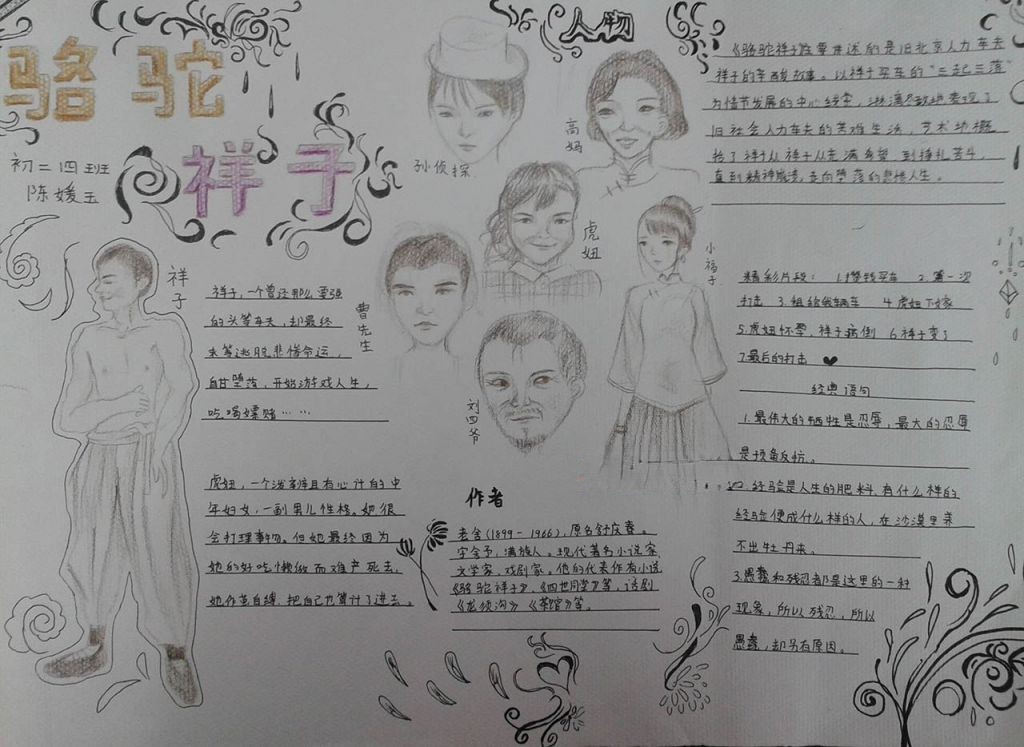 骆驼
祥子
初二四班
陈媛玉
人物
孙侦探
高妈
虎妞
小福子
曹先生
刘四爷
祥子
祥子，一个曾经那么要强
的头等车夫，却最终
未等逃脱悲惨命运，
自甘堕落，开始游戏人生，
吃喝嫖赌……
虎妞，一个泼辣且有心计的中
年妇女，一副男儿性格。她很
会打理事物。但她最终因为
她的好吃懒做而难产死去，
她作茧自缚，把自己也算计了进去。
作者
老舍(1899-1966)，原名舒庆春。
字舍予，满族人。现代著名小说家，
文学家，戏剧家。他的代表作有小说
《骆驼祥子》，《四世同堂》等，话剧
《龙须沟》《茶馆》等。
《骆驼祥子》主要讲述的是旧北京人力车夫
祥子的辛酸故事。以祥子买车的“三起三落”
为情节发展的中心线索，淋漓尽致地表现了
旧社会人力车夫的苦难生活，艺术地概
括了祥子从祥子从充满希望，到挣扎苦斗，
直到精神崩溃，走向堕落的悲惨人生。
精彩片段： 1.攒钱买车 2.第一次
打击 3.租给俩辆车 4.虎妞下嫁
5.虎妞怀孕，祥子病倒 6.祥子变了
7.最后的打击
经典语句
1.最伟大的牺牲是忍辱，最大的忍辱
是预备反抗。
2.经验是人生的肥料，有什么样的
经验便成什么样的人，在沙漠里养
不出牡丹来。
3.愚蠢和残忍都是这里的一种
现象，所以残忍，所以
愚蠢，却另有原因。